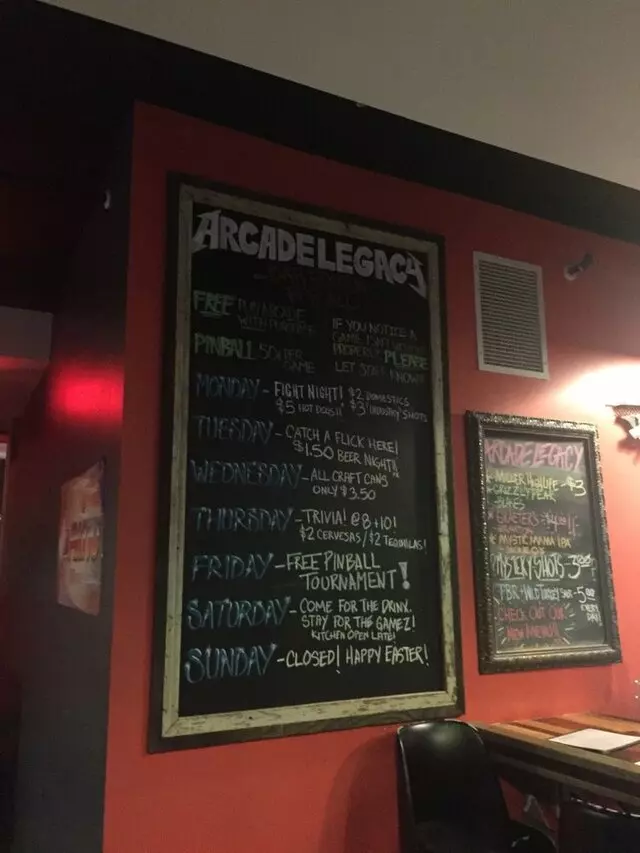 ARCADE LEGACY
FREE FUN ARCADE
WITH PURCHASE
PINBALL 50¢ PER
GAME
IF YOU NOTICE A
GAME ISN'T WORKING
PROPERLY PLEASE
LET STAFF KNOW!
MONDAY - FIGHT NIGHT! $2 DOMESTICS
$5 HOT DOGS!! $3 INDUSTRY SHOTS
TUESDAY - CATCH A FLICK HERE!
$1.50 BEER NIGHT!!
WEDNESDAY - ALL CRAFT CANS
ONLY $3.50
THURSDAY - TRIVIA! @ 8 + 10!
$2 CERVESAS / $2 TEQUILAS!
FRIDAY - FREE PINBALL
TOURNAMENT!
SATURDAY - COME FOR THE DRINX.
STAY FOR THE GAMEZ!
KITCHEN OPEN LATE!
SUNDAY - CLOSED! HAPPY EASTER!
ARCADE LEGACY
MILLER HIGH LIFE - $3
GRIZZLY PEAR
MYSTIC MAMA IPA
MYSTERY SHOTS - 3.00
PBR + WILD TURKEY SHOT - 5.00
EVERY
DAY!
CHECK OUT OUR
NEW MENU!!